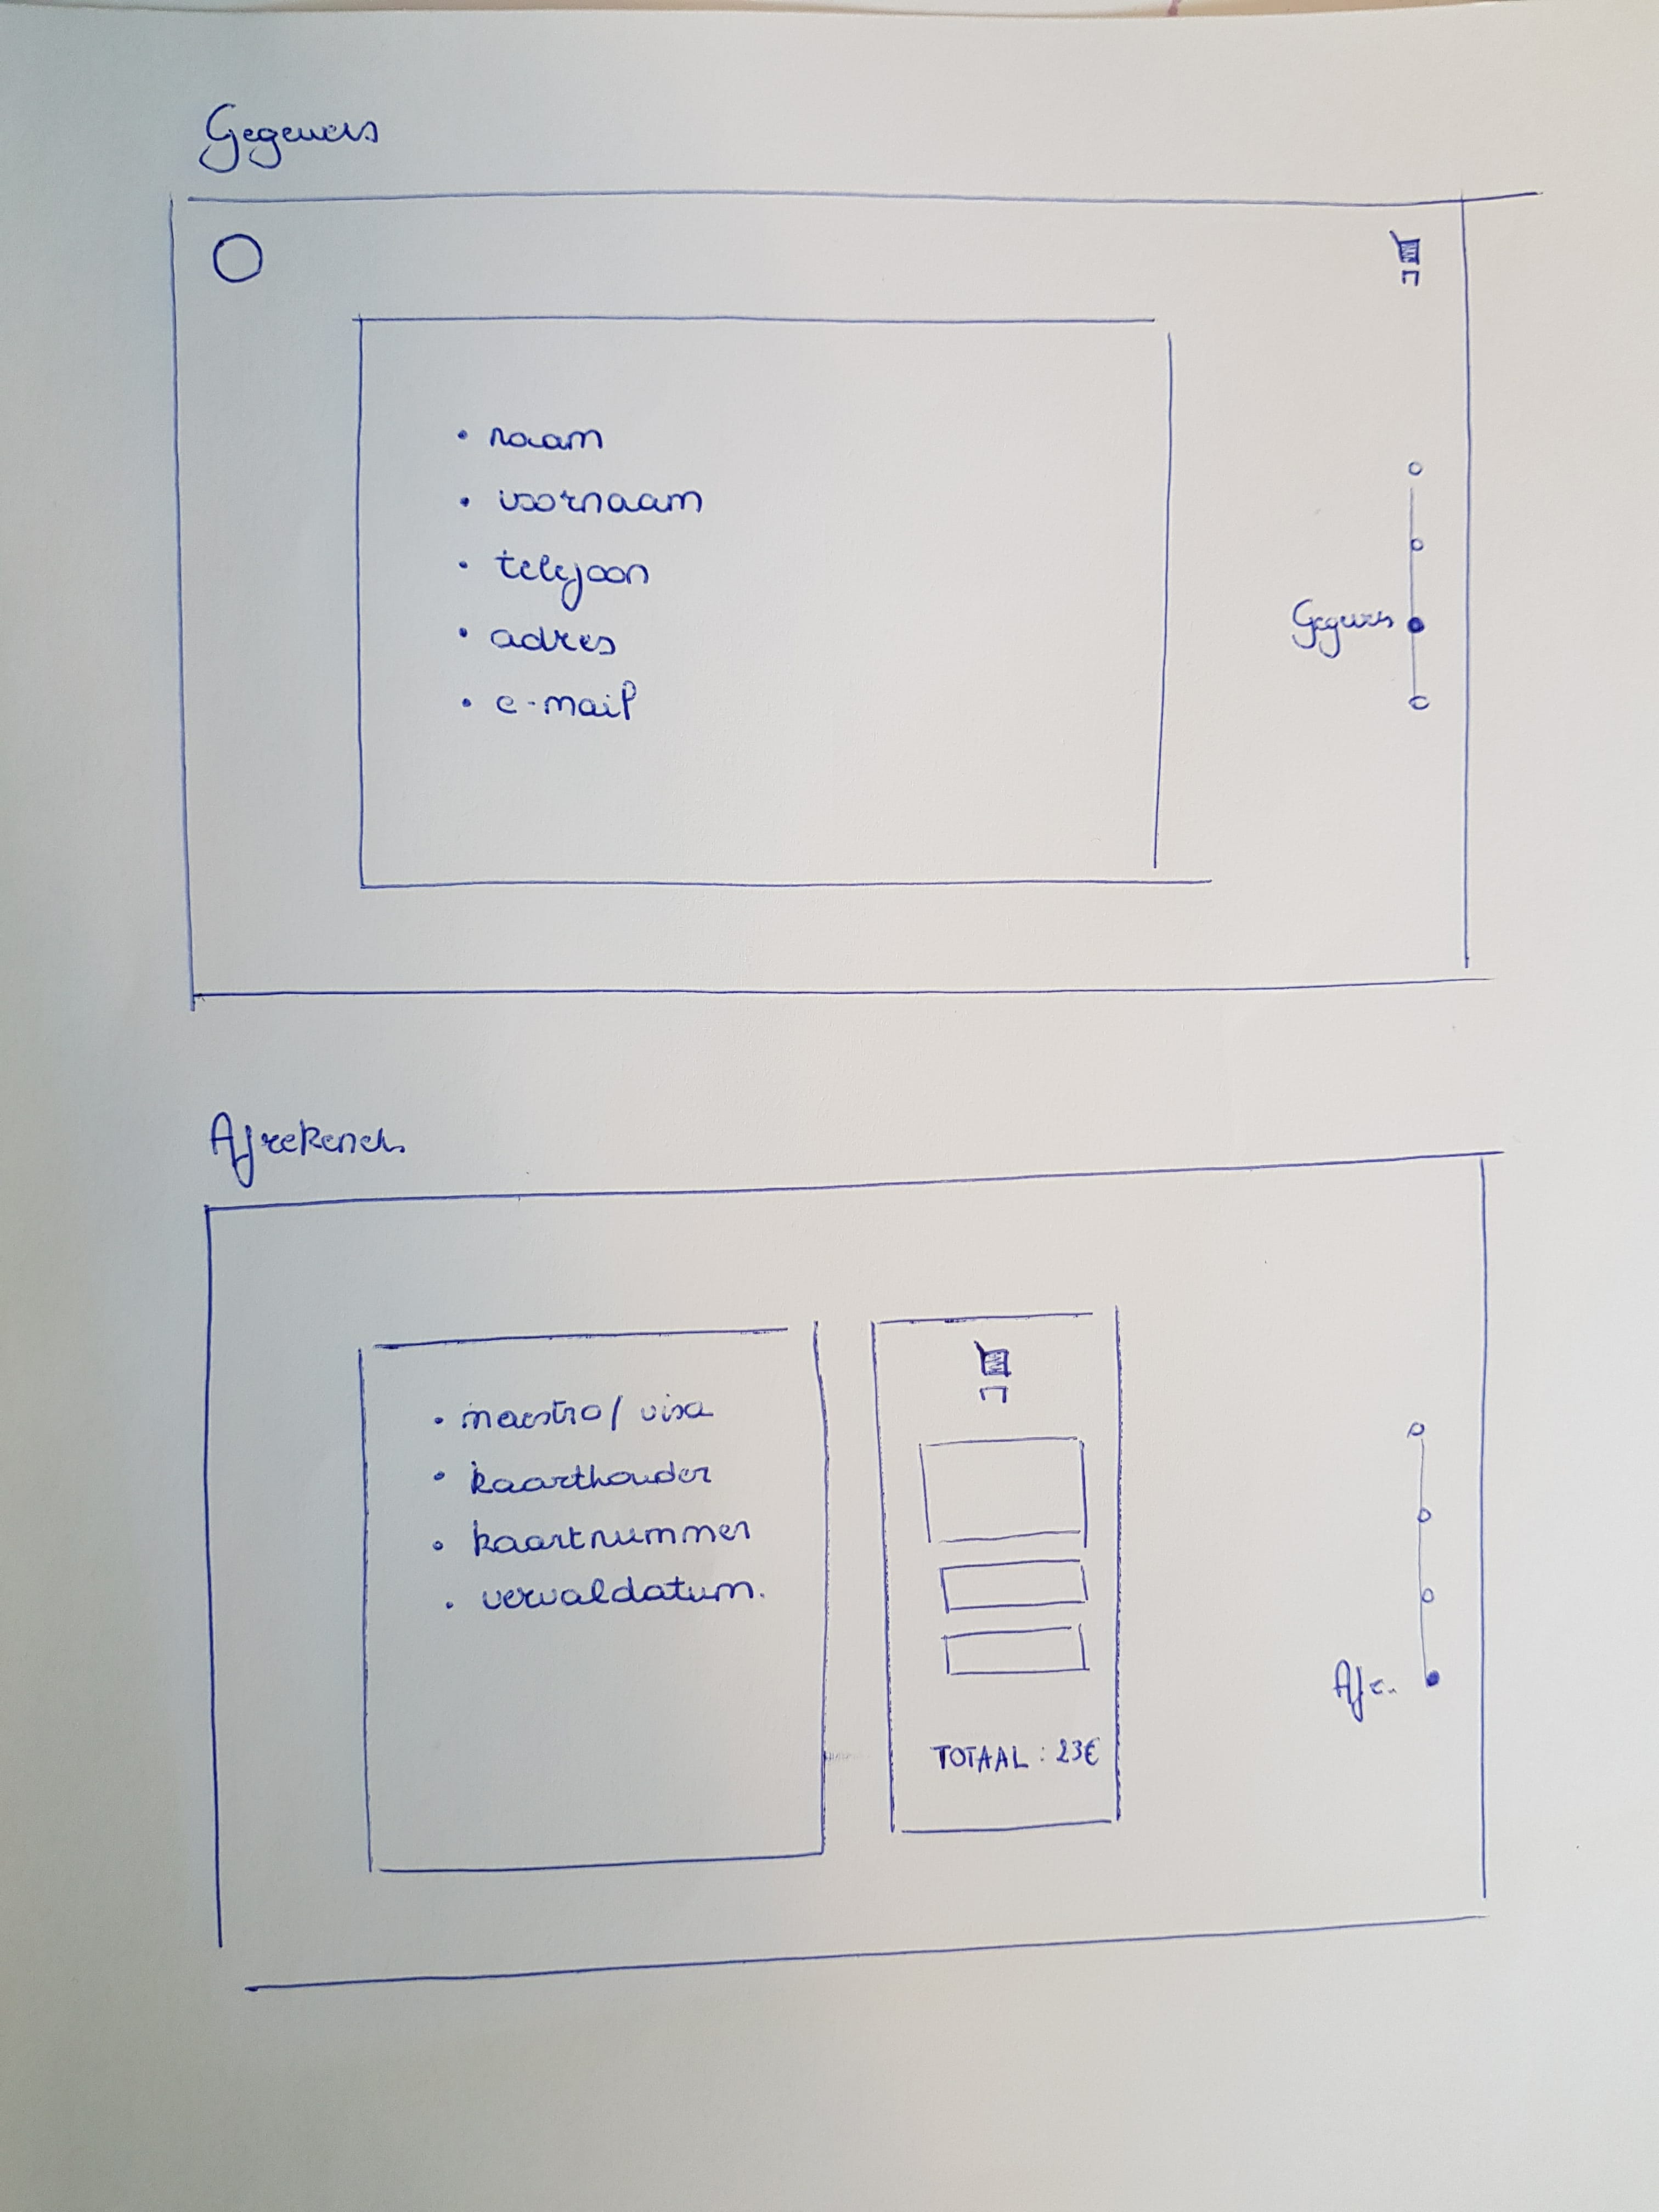 Gegevens
• naam
• voornaam
• telefoon
• adres
• e-mail
Gegevens
Afrekenen
• maestro/visa
• kaarthouder
• kaartnummer
• vervaldatum.
TOTAAL : 23€
Afr..